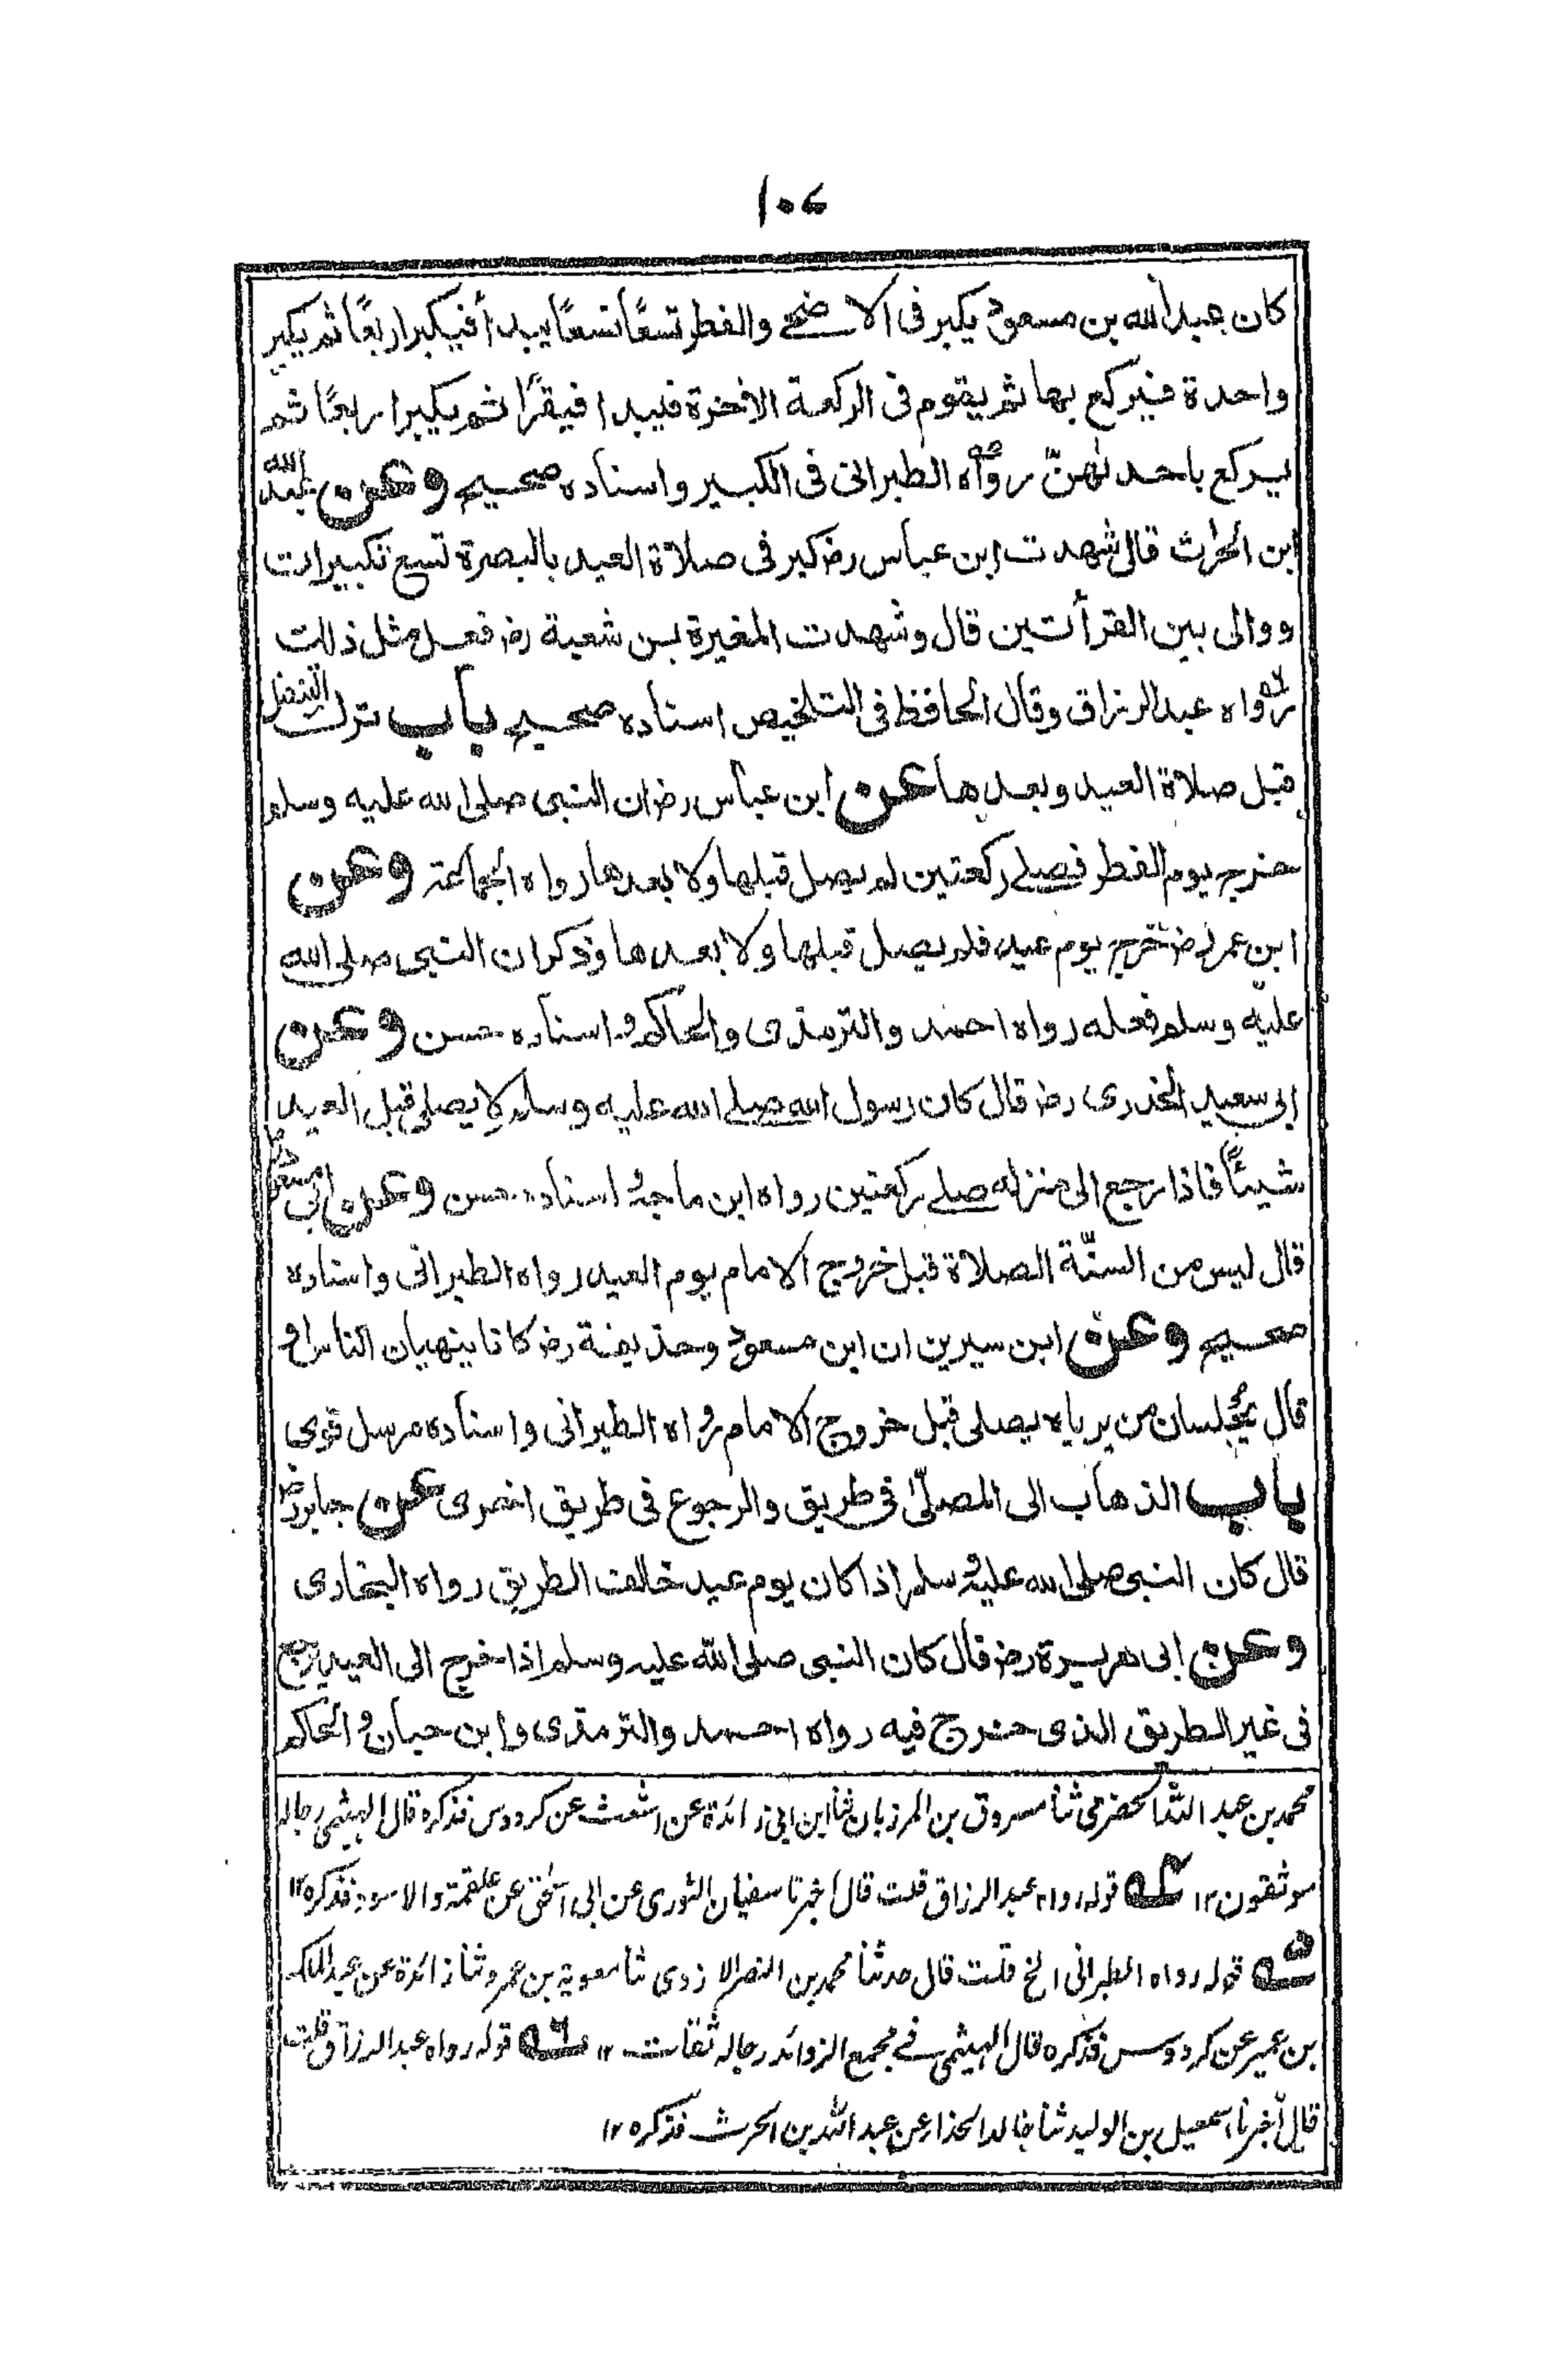 ١٠٧
كان عبد الله بن مسعود يكبر فى الاضحے والفطر تسعًا تسعًا يبدأ فيكبر اربعًا ثم يكبر
واحدة فيركع بها ثم يقوم فى الركعة الاخرة فيبدا فيقرأ ثم يكبر اربعًا ثم
يركع باحد لهنّ رواه الطبرانى فى الكبير واسناده صحيح وعن عبد الله
ابن الحرث قال شهدت ابن عباس رض كبر فى صلاة العيد بالبصرة تسع تكبيرات
ووالى بين القرأتين قال وشهدت المغيرة بن شعبة رض فعل مثل ذلك
رواه عبد الرزاق وقال الحافظ فى التلخيص اسناده صحيح باب ترك التنفل
قبل صلاة العيد وبعدها عن ابن عباس رض ان النبى صلى الله عليه وسلم
خرج يوم الفطر فصلے ركعتين لم يصل قبلها ولا بعدها رواه الجماعة وعن
ابن عمر رض خرج يوم عيد فلم يصل قبلها ولا بعدها وذكر ان النبى صلى الله
عليه وسلم فعله رواه احمد والترمذى والحاكم واسناده حسن وعن
ابى سعيد الخدرى رض قال كان رسول الله صلے الله عليه وسلم لا يصلى قبل العيد
شيئًا فاذا رجع الى منزله صلے ركعتين رواه ابن ماجة واسناده حسن وعن ابى مسعود رض
قال ليس من السنّة الصلاة قبل خروج الامام يوم العيد رواه الطبرانى واسناده
صحيح وعن ابن سيرين ان ابن مسعود وحذيفة رض كانا ينهيان الناس او
قال يجلسان من يرياه يصلى قبل خروج الامام رواه الطبرانى واسناده مرسل قوى
باب الذهاب الى المصلّىٰ فى طريق والرجوع فى طريق اخرى عن جابر رض
قال كان النبى صلى الله عليه وسلم اذا كان يوم عيد خالف الطريق رواه البخارى
وعن ابى هريرة رض قال كان النبى صلى الله عليه وسلم اذا خرج الى العيد يرجع
فى غير الطريق الذى خرج فيه رواه احمد والترمذى وابن حبان والحاكم
محمد بن عبد الله الحضرمى ثنا مسروق بن المرزبان ثنا ابن ابى زائدة عن اشعث عن كردوس فذكره قال الهيثمى رجاله
موثقون ١٢ ٤ـه قوله رواه عبد الرزاق قلت قال اخبرنا سفيان الثورى عن ابى اسحٰق عن علقمة والاسود فذكره ١٢
٥ـه قوله رواه الطبرانى الخ قلت قال حدثنا محمد بن النضر الازدى ثنا معوية بن عمرو ثنا زائدة عن عبد الملك
بن عمير عن كردوس فذكره قال الهيثمى فے مجمع الزوائد رجاله ثقات ١٢ ٦ـه قوله رواه عبد الرزاق قلت
قال اخبرنا اسمعيل بن الوليد ثنا خالد الحذاء عن عبد الله بن الحرث فذكره ١٢